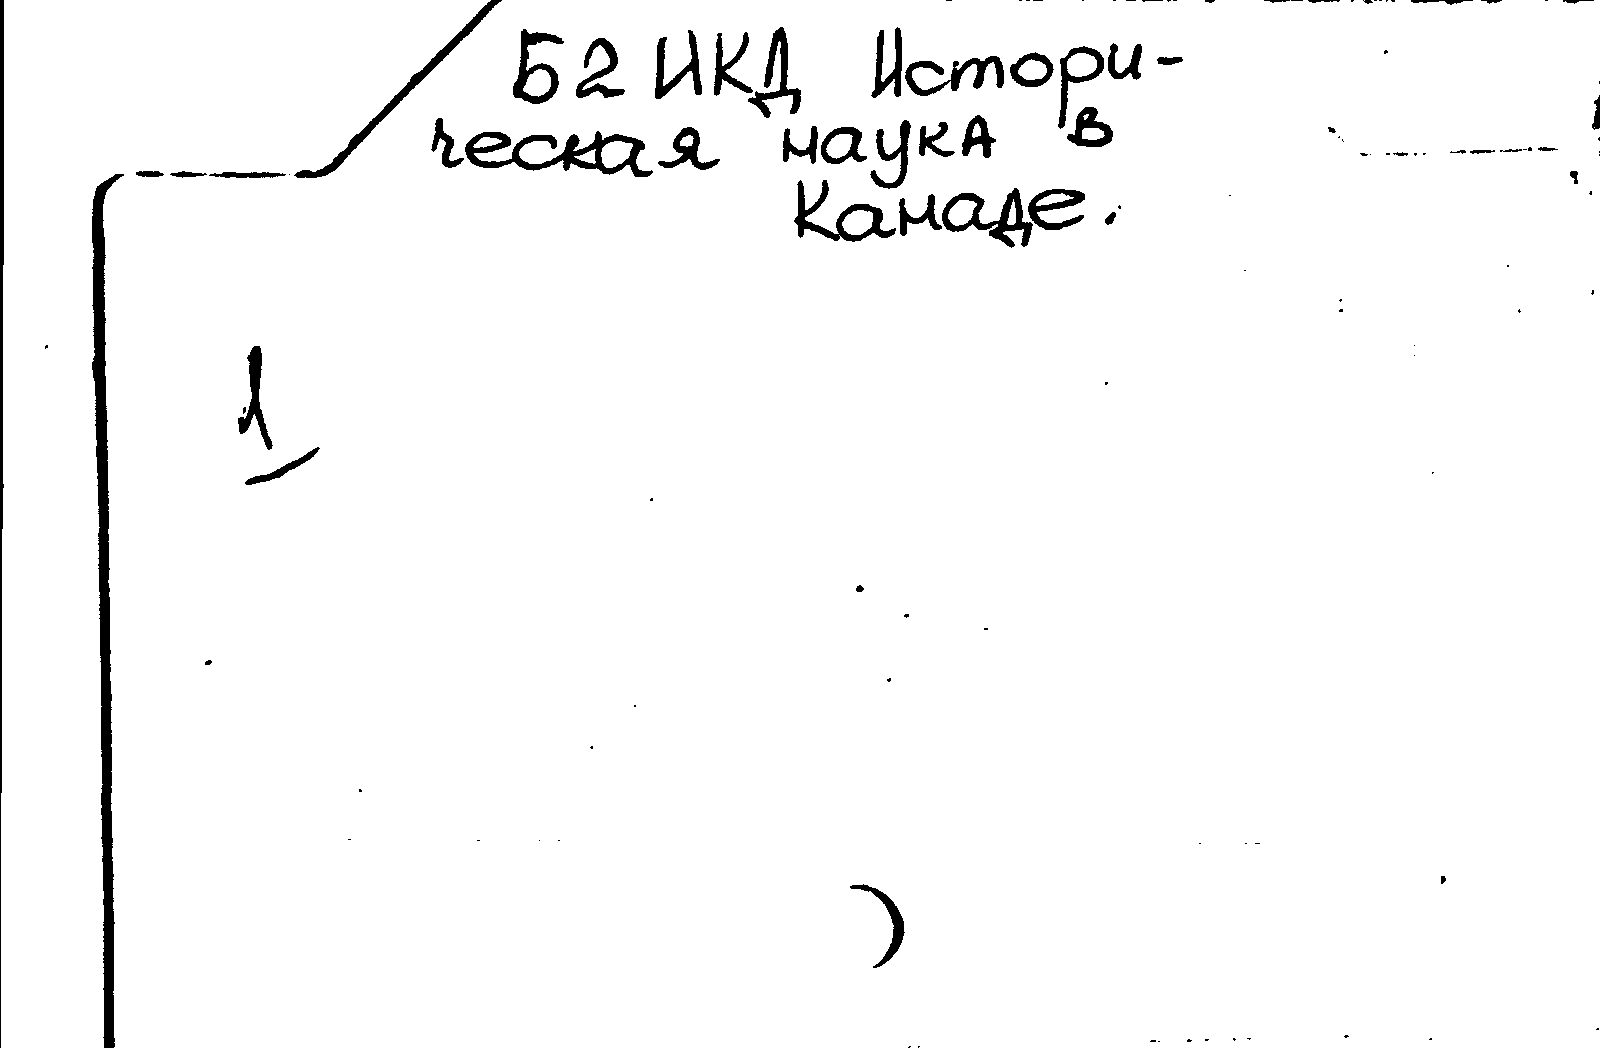 Б2 ИКД Истори-
ческая наука в
Канаде.
1